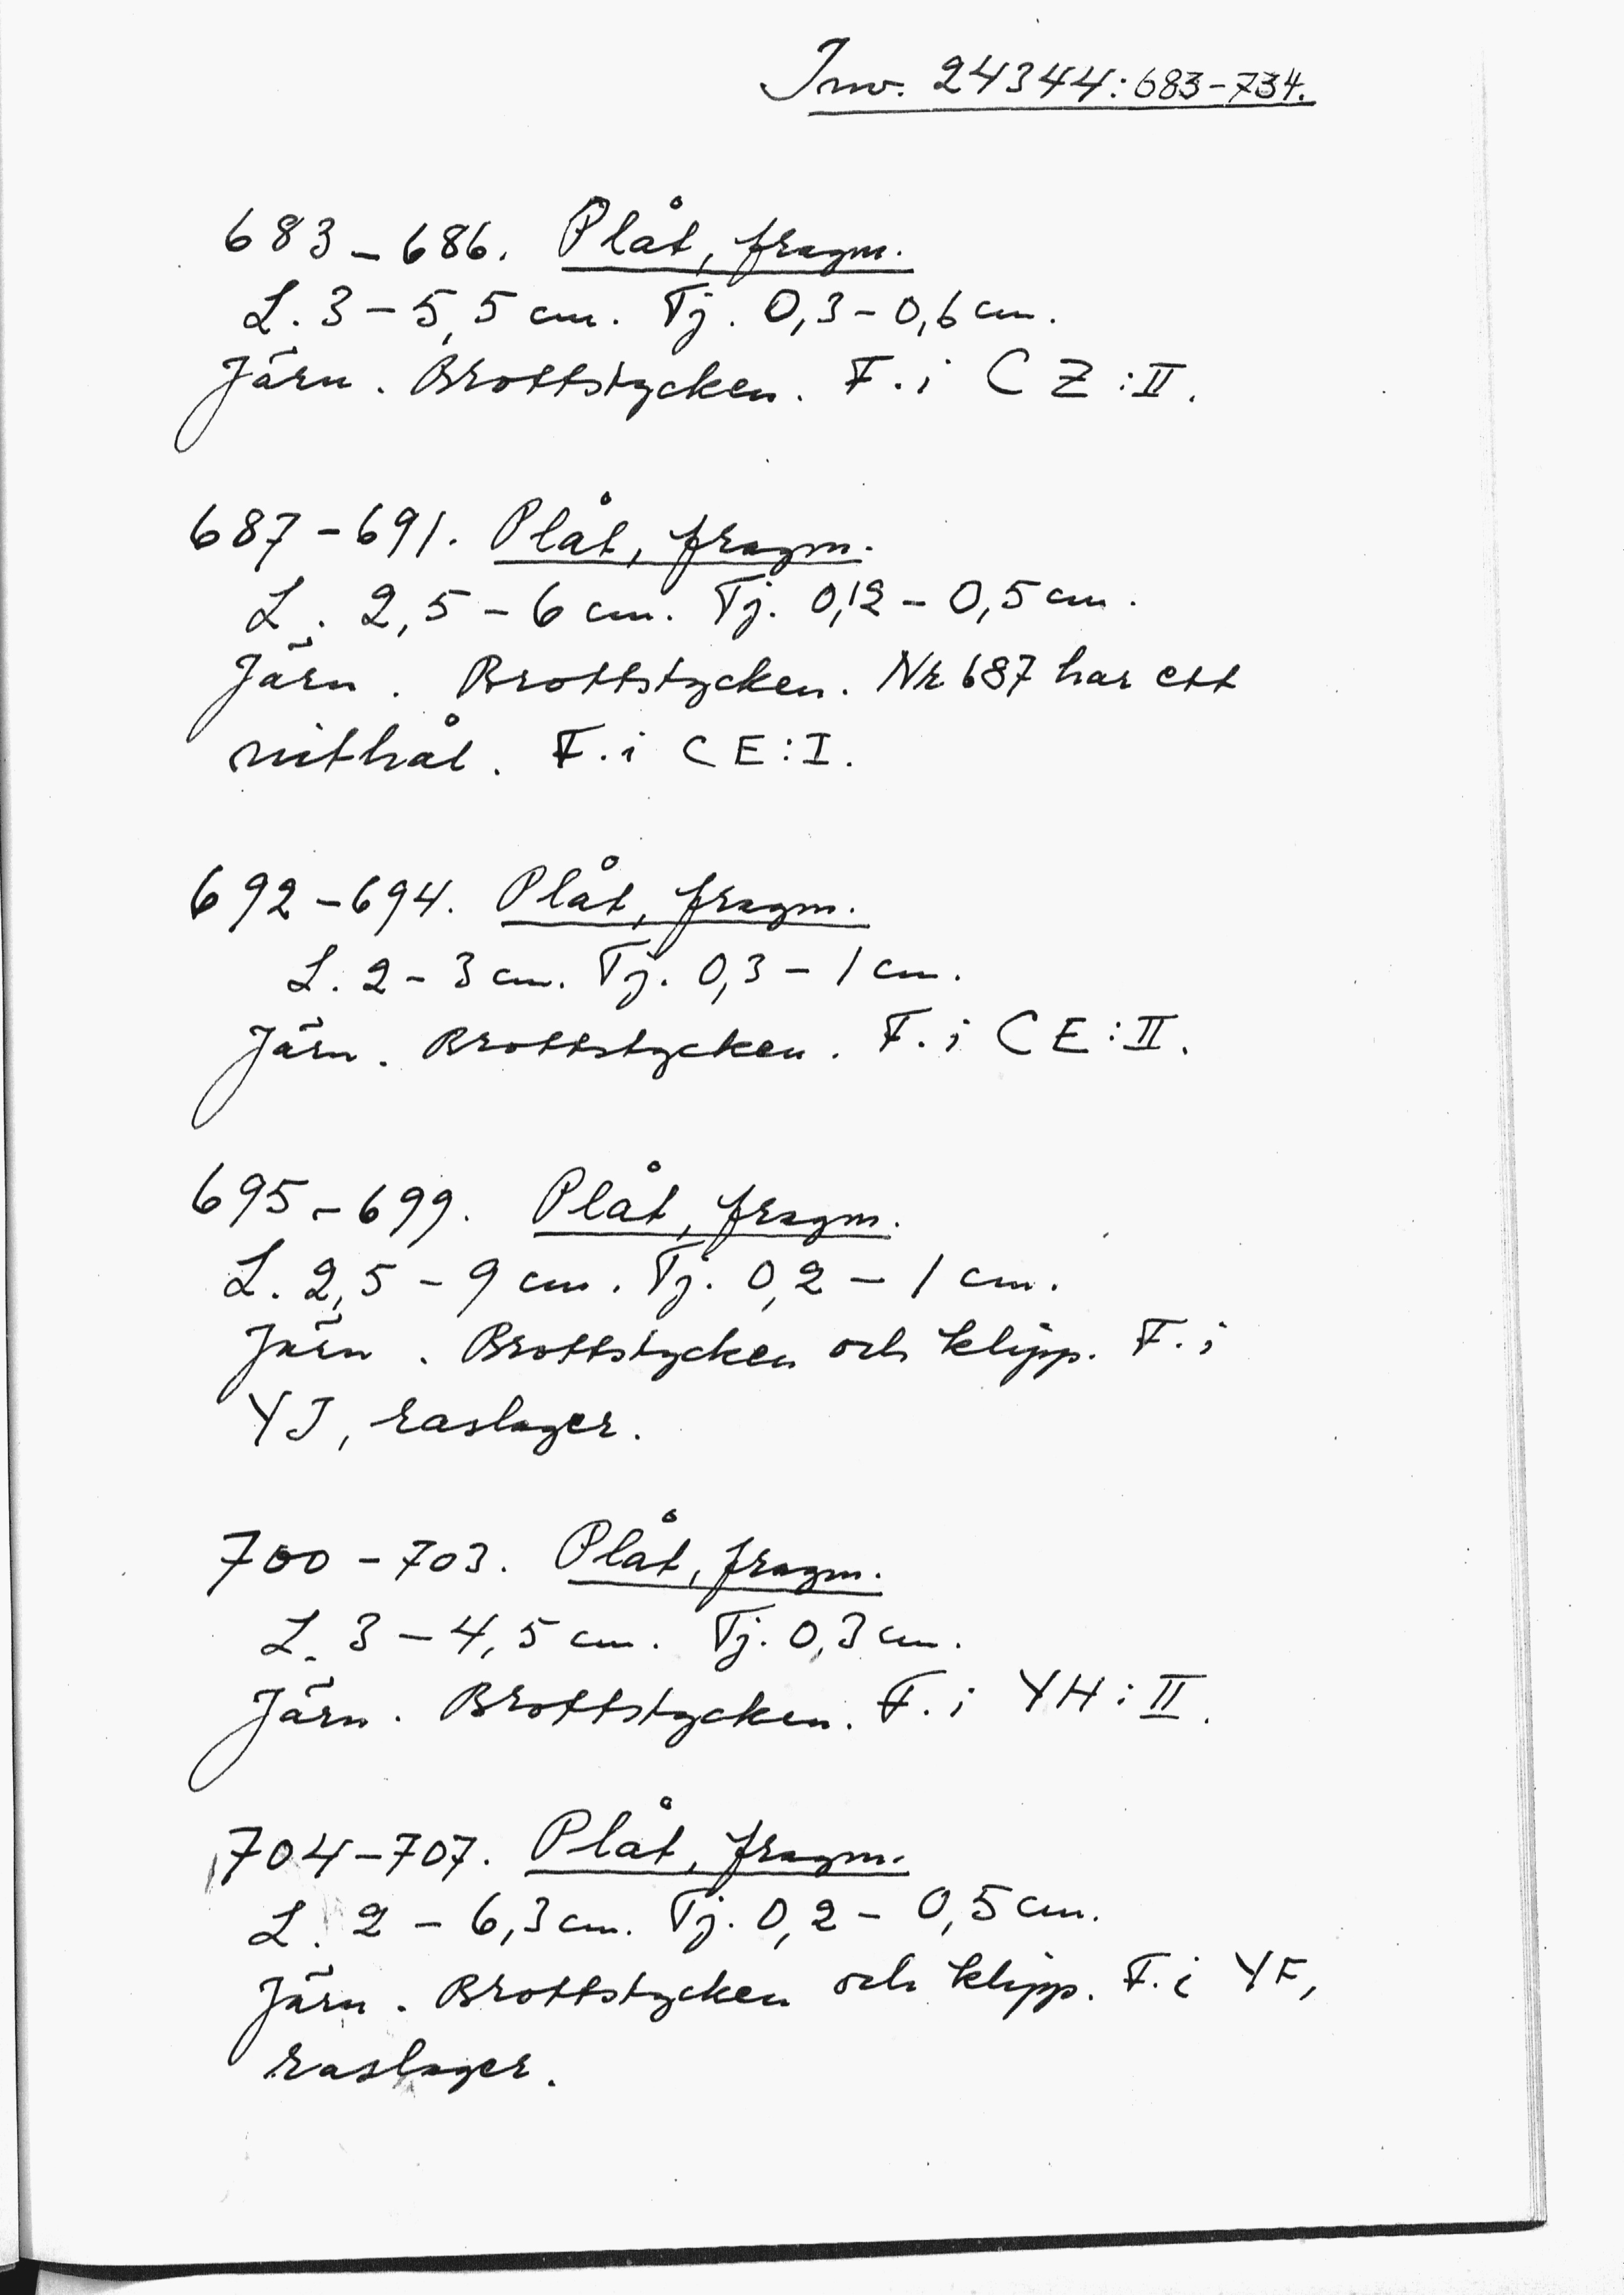 Inv. 24344:683-734.
683-686. Plåt, fragm.
L. 3-5,5 cm. Tj. 0,3-0,6 cm.
Järn. Brottstycken. F. i CZ:II.
687-691. Plåt, fragm.
L. 2,5-6 cm. Tj. 0,12-0,5 cm.
Järn. Brottstycken. Nr 687 har ett
nithål. F. i CE:I.
692-694. Plåt, fragm.
L. 2-3 cm. Tj. 0,3-1 cm.
Järn. Brottstycken. F. i CE:II.
695-699. Plåt, fragm.
L. 2,5-9 cm. Tj. 0,2-1 cm.
Järn. Brottstycken och klipp. F. i
YJ, raslager.
700-703. Plåt, fragm.
L. 3-4,5 cm. Tj. 0,3 cm.
Järn. Brottstycken. F. i YH:II.
704-707. Plåt, fragm.
L. 2-6,3 cm. Tj. 0,2-0,5 cm.
Järn. Brottstycken och klipp. F. i YF,
raslager.